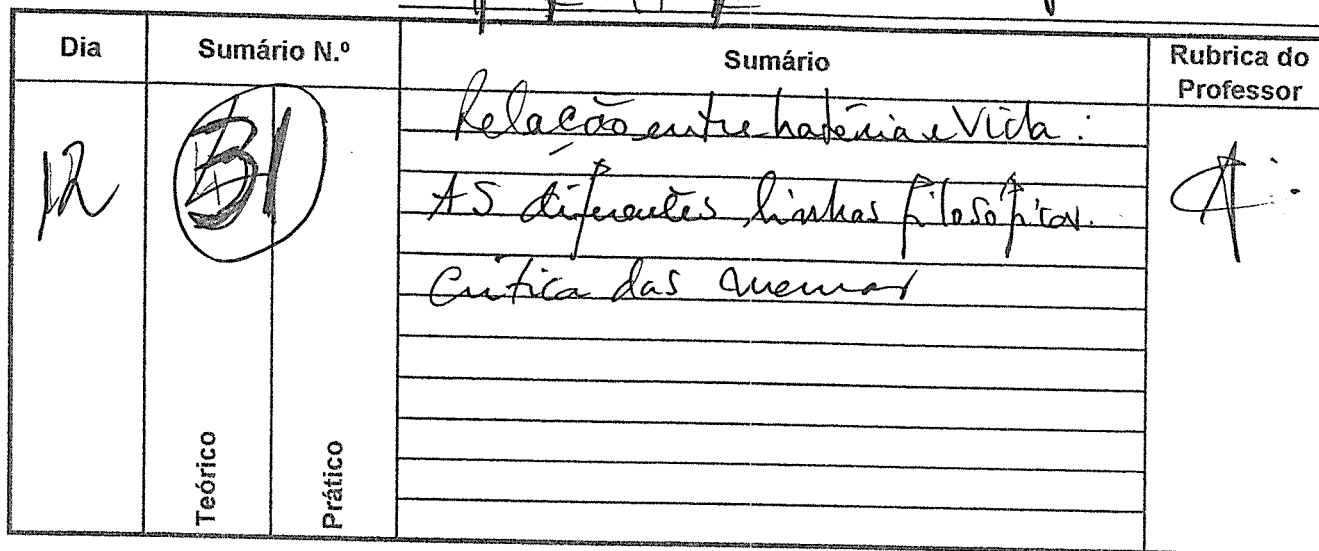 Dia Sumário N.º Sumário Rubrica do Professor
12
Relação entre Matéria e Vida:
As diferentes linhas filosóficas.
Crítica das mesmas
Teórico
Prático